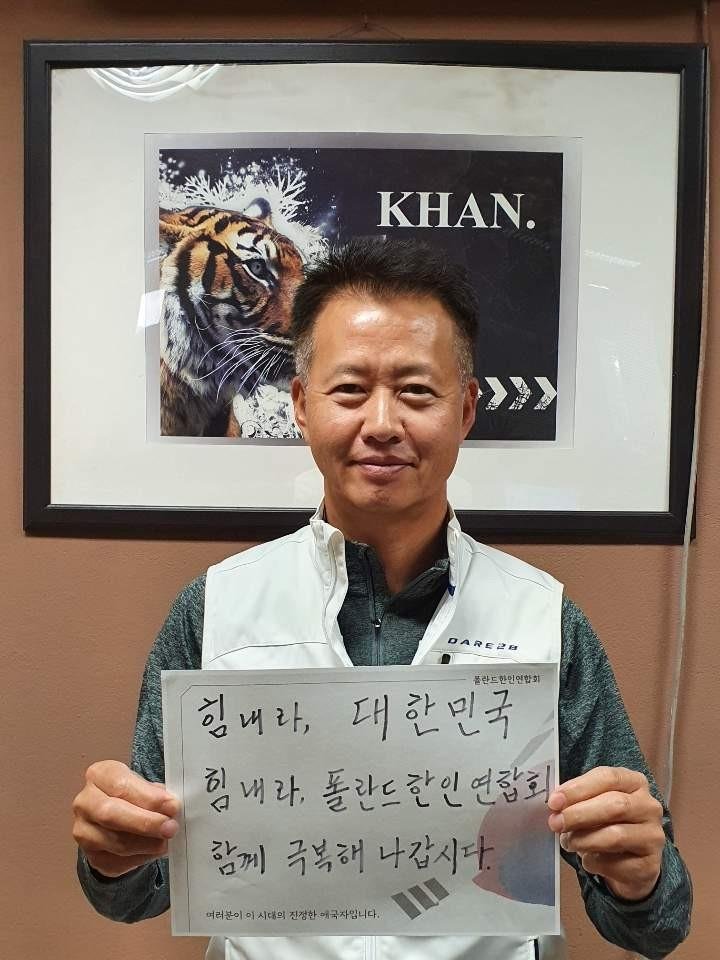 KHAN.
DARE2B
폴란드한인연합회
힘내라, 대한민국
힘내라, 폴란드한인연합회
함께 극복해 나갑시다.
여러분이 이 시대의 진정한 애국자입니다.